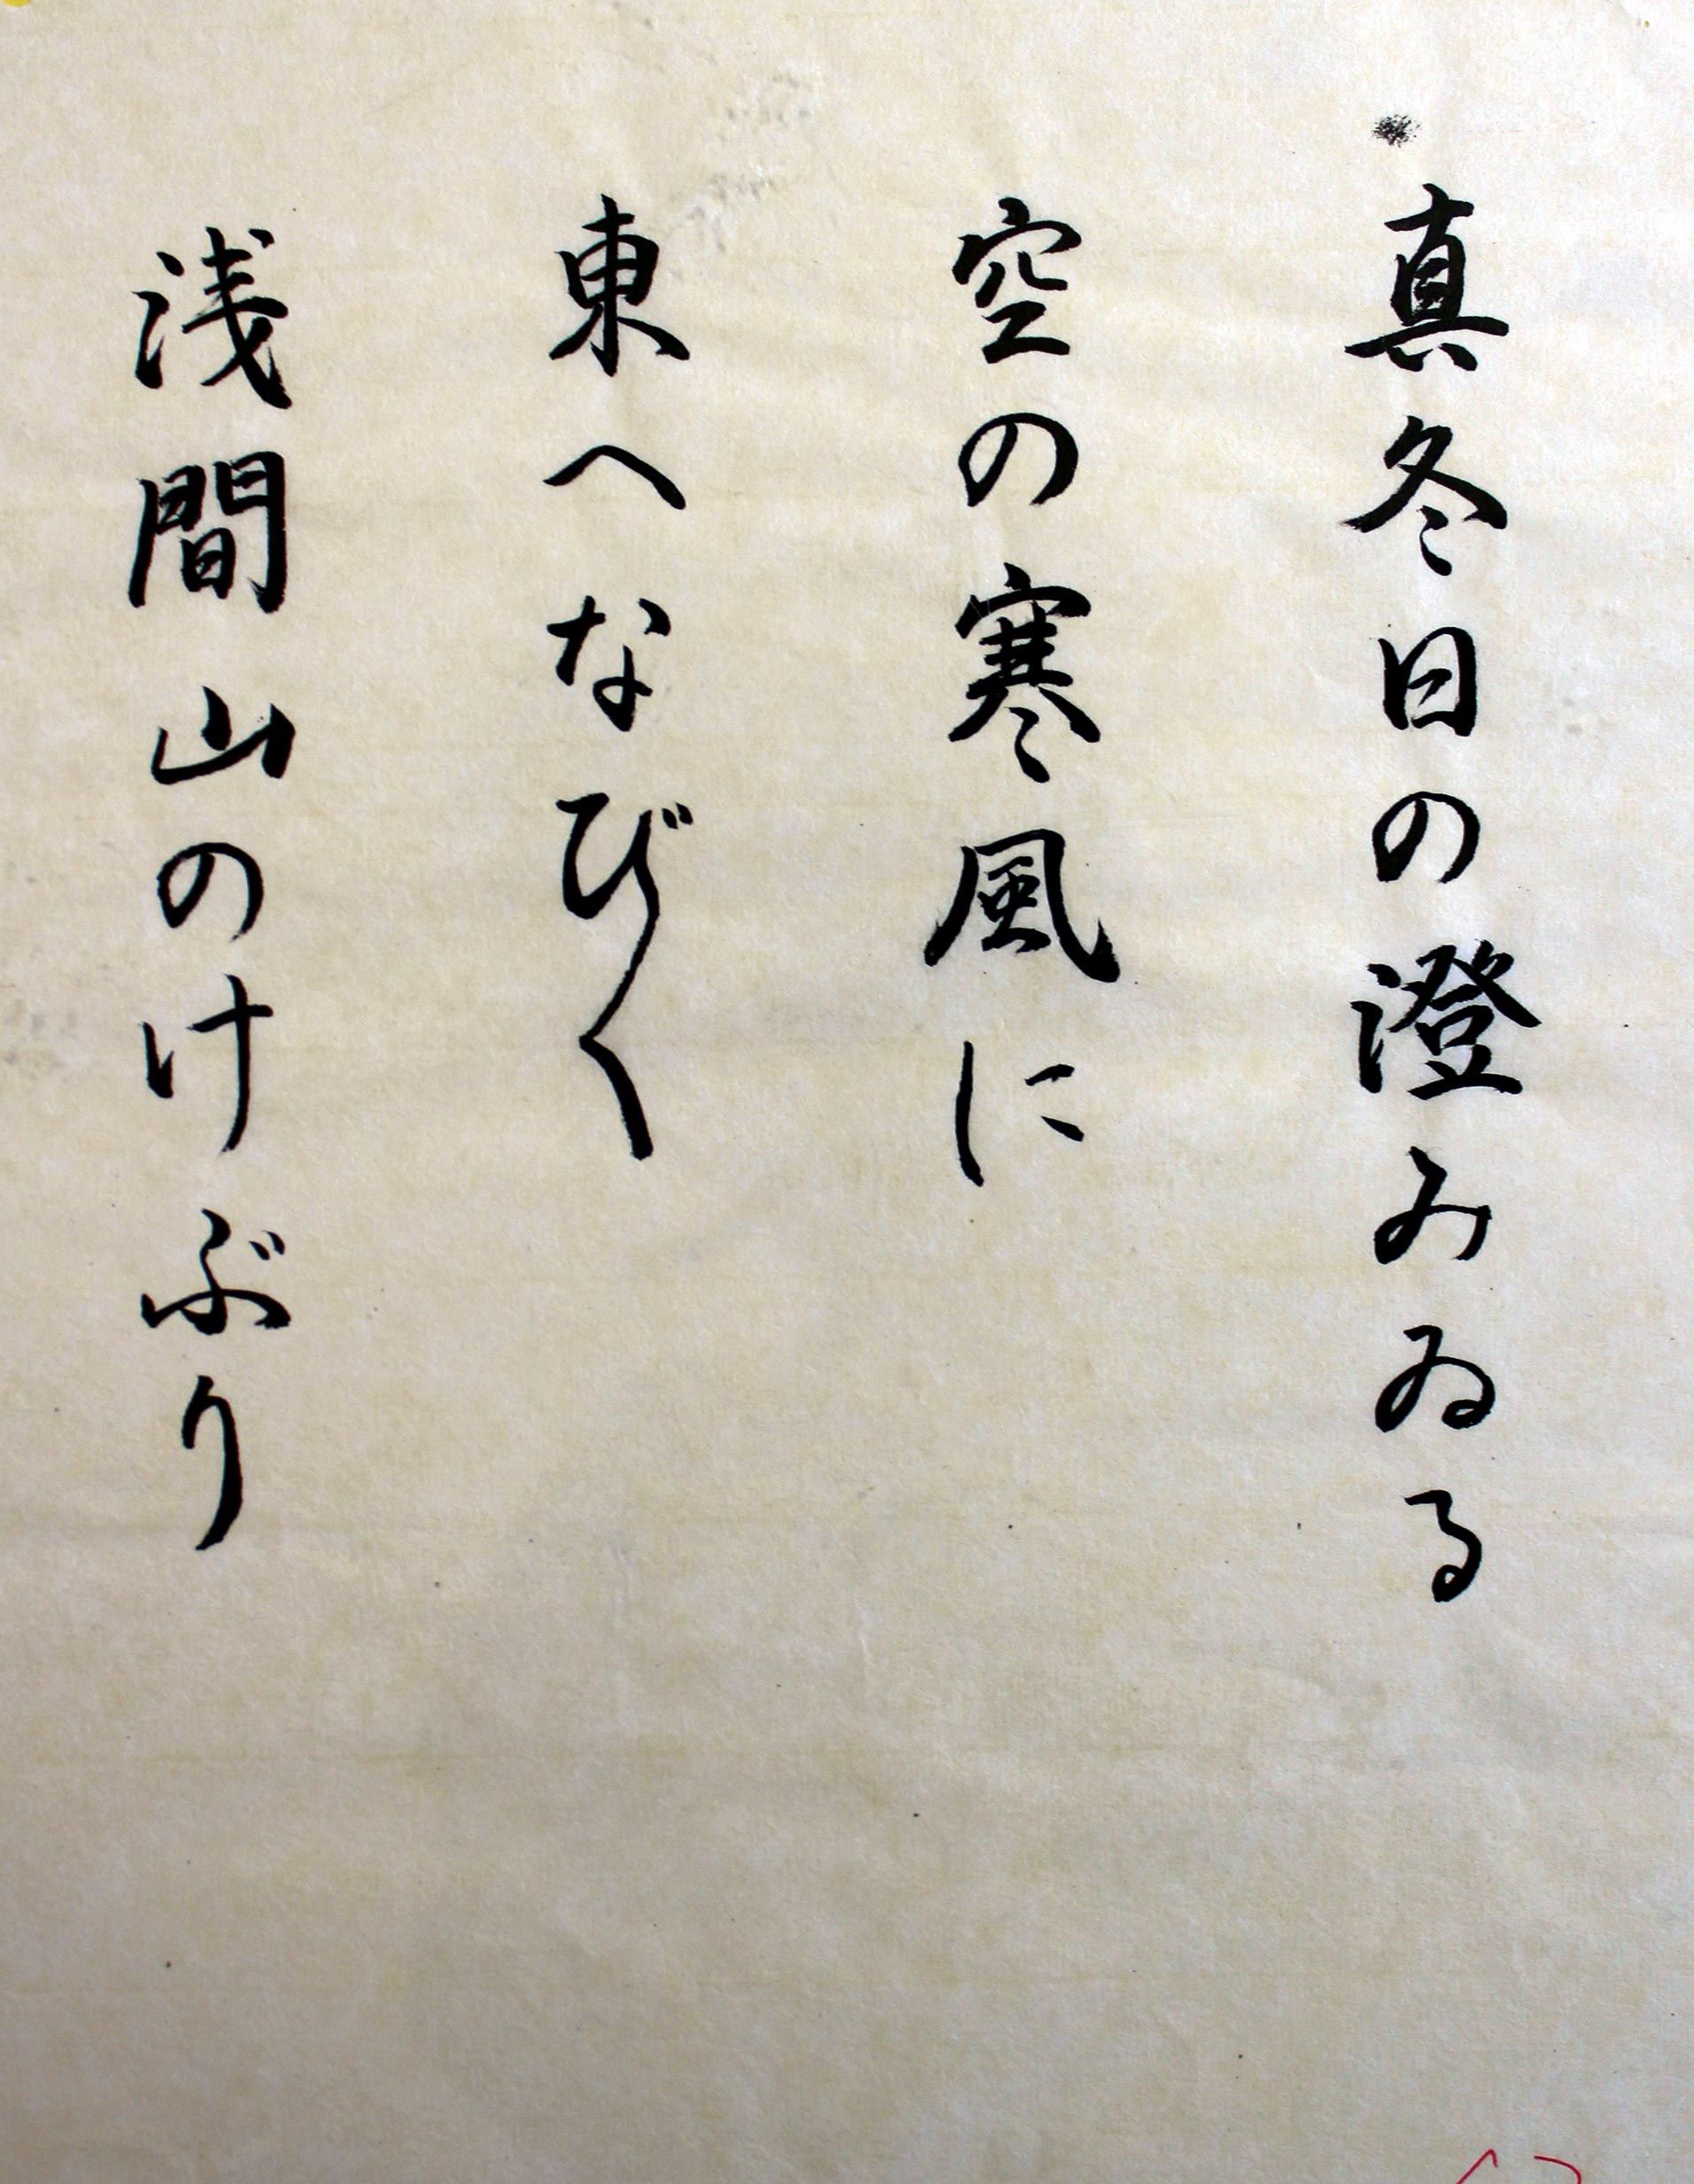 真冬日の澄みゐる
空の寒風に
東へなびく
浅間山のけぶり